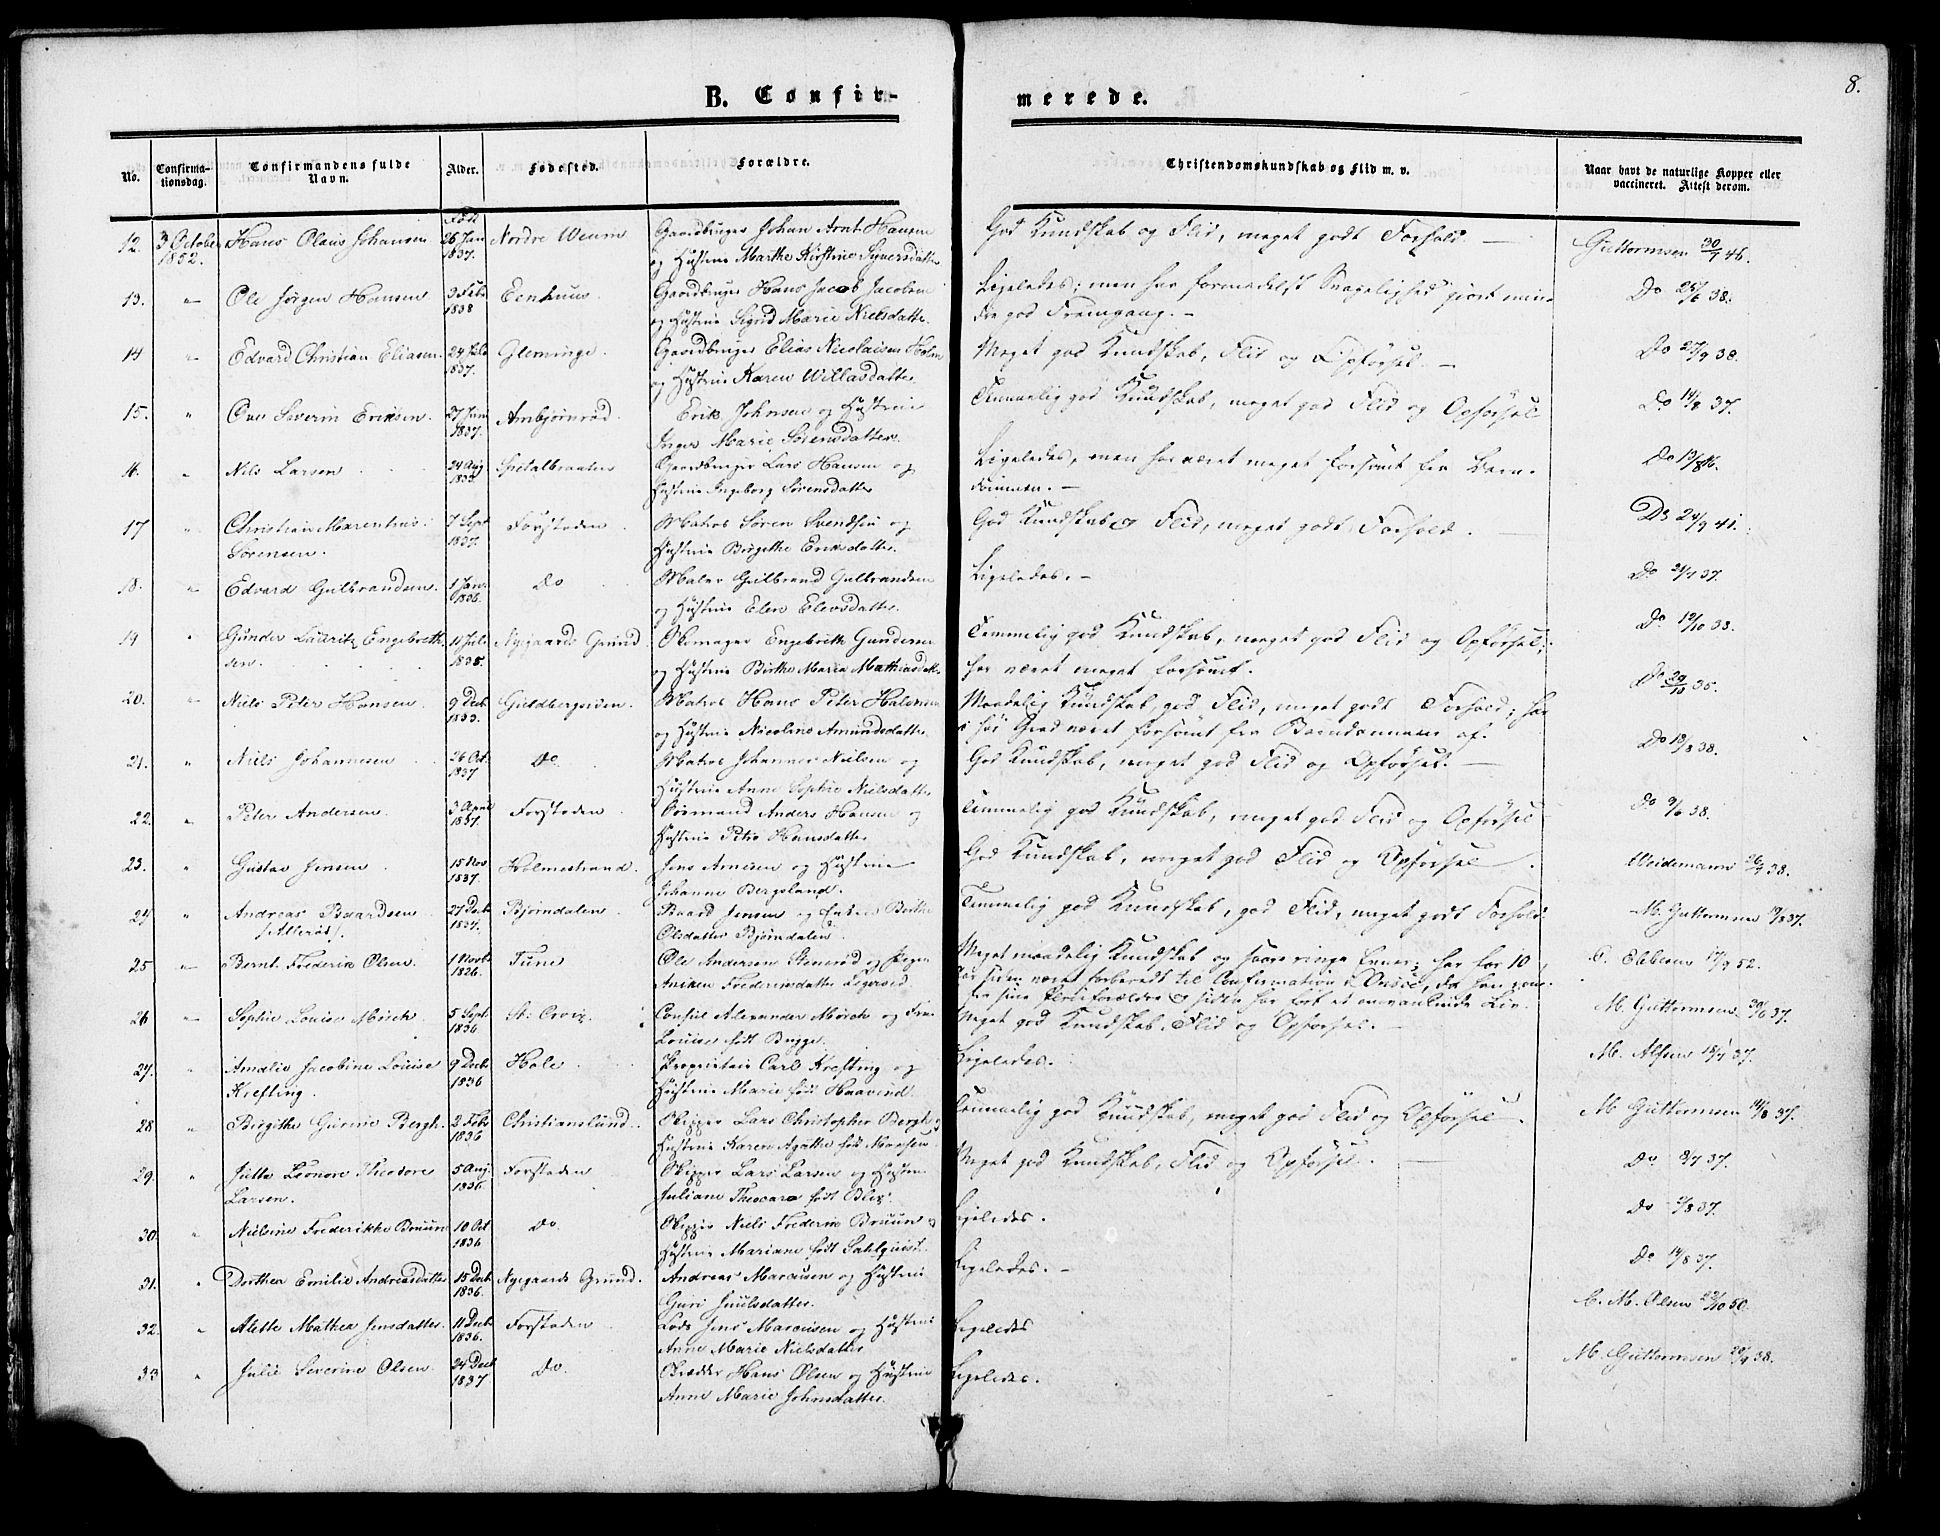 8.
B. Confir-
merede.
No.
Confirma-
tionsdag.
Confirmandens fulde
Navn.
Alder.
Fødested.
Forældre.
Christendomskundskab og Flid m. v.
Naar havt de naturlige Kopper eller
vaccineret. Attest derom.
12. 3 October Hans Olaus Johansen Fød 26 Jan Nordre Gaardbruger Johan Arnt Hansen God Kundskab og Flid, meget godt Forhold. Guttormsen 30/7 46.
1852. 1837. og Hustrue Marthe Kirstine Syversdatter
13. " Ole Jørgen Hansen 3 Feb Eenhuus. Gaardbruger Hans Jacob Jacobsen Ligeledes; men har formedelst Svagelighed gjort min- Do 25/6 38.
1838 og Hustrue Sigrid Marie Nielsdatter. dre god Fremgang.
14 " Edvard Christian Eliasen. 24 Glemminge. Gaardbruger Elias Nicolaisen Holm Meget god Kundskab, Flid og Opførsel. Do 27/9 38.
1837. og Hustrue Karen Willasdatter
15. " Ove Severin Eriksen. 27 Jan Ambjørnrød. Erik Johnsen og Hustrue Temmelig god Kundskab, meget god Flid og Opførsel Do 14/8 37.
1837. Inger Marie Sørensdatter.
16. " Nils Larsen 24 Aug Spetalbraaten Gaardbruger Lars Hansen og Ligeledes, men har været meget forsømt fra Barn- Do
Hustrue Ingeborg Sørensdatter dommen.
17 " Christian Marentius 7 Sept Forstaden Matros Søren Svendsen og God Kundskab og Flid, meget godt Forhold. Do 24/9 41.
Sørensen. 1837. Hustrue Birgithe Eriksdatter.
18. " Edvard Gulbrandsen. 1 Jan. Do Maler Gulbrand Gulbrandsen Ligeledes. Do 37.
1836. og Hustrue Elen Elevsdatter.
19 " Gunder Lauritz Engebreth- Nygaards Grund Skomager Engebreth Gundersen Temmelig god Kundskab, meget god Flid og Opførsel; Do
sen. og Hustrue Birthe Maria Mathiasdatter har været meget forsømt.
20. " Niels Peter Hansen 9 Decb Guldbergsiden. Matros Hans Peter Halvorsen Maadelig Kundskab, god Flid, meget godt Forhold; har Do 29/10 35.
og Hustrue Nicoline Amundsdatter i høi Grad været forsømt fra Barndommen af.
21. " Niels Johannesen 26 Oct. Do. Matros Johannes Nielsen og God Kundskab, meget god Flid og Opførsel. Do 13/8 38.
1837 Hustrue Anne Sophie Nielsdatter
22. " Peter Andersen 3 April Forstaden Sømand Anders Hansen og Temmelig god Kundskab, meget god Flid og Opførsel Do 38.
1837. Hustrue Hansdatter
23. " Gustav Jensen 15 Nov Holmestrand. Jens Arnesen og Hustrue God Kundskab, meget god Flid og Opførsel. Weidemann 38.
1837. Johanne Bergsland.
24 " Andreas Baardsen 27 Decb Bjørndalen Baard Jensen og Birthe Temmelig god Kundskab, god Flid, meget godt Forhold. M. Guttormsen 37.
1837. Olsdatter Bjørndalen.
25 " Bernt Frederik Olsen 1 Novb Tune Ole Andersen Stenerød og Pigen Meget maadelig Kundskab og saare ringe Evner; har for 10 C. Ebbesen 17/9 52.
1826. Aniken Frederiksdatter Aar siden været forberedt til Confirmation i Onsø, da han
sine Pleieforældre og siden har ført et omvankende Liv.
26 " Sophie Louise Mørch 5 Sept. St: Croix. Consul Alexander Mørch og Frue Meget god Kundskab, Flid og Opførsel. M. Guttormsen 37.
1836 Louise født Bugge.
27. " Amalie Jacobine Louise 9 Decb Hole Proprietair Carl Krefting og Ligeledes. M. 37.
Krefting. 1836 Hustrue Marie født Haavind.
28 " Birgithe Gurine Bergh. 2 Feb Christianslund. Skipper Lars Christopher Bergh og Temmelig god Kundskab, meget god Flid og Opførsel. M Guttormsen 14/8 37.
1836 Hustrue Karen Agathe født
29. " Jutta Leonore Theodore 5 Aug. Forstaden Skipper Lars Larsen og Hustrue Meget god Kundskab, Flid og Opførsel. Do 37.
Larsen. 1836. Juliane født Blix.
30. " Nielsine Frederikke Bruun 10 Oct Do Skipper Niels Frederik Bruun og Ligeledes. Do 37.
1836 Hustrue Mariane født Sahlquist.
31. " Dorthea Emilie Andreasdatter 15 Decb Nygaards Grund. Andreas Marcusen og Hustrue Ligeledes. Do 14/8 37.
1836. Guri Juulsdatter.
32. " Alette Mathea Jensdatter. 11 Decb Forstaden Lods Jens Marcusen og Hustrue Ligeledes C. M. Olsen 50.
1836. Anne Marie Nielsdatter
33 " Julie Severine Olsen. 24 Decb Do. Hans Olsen og Hustrue Ligeledes. M. Guttormsen 38.
1837 Anne Marie Johnsdatter.